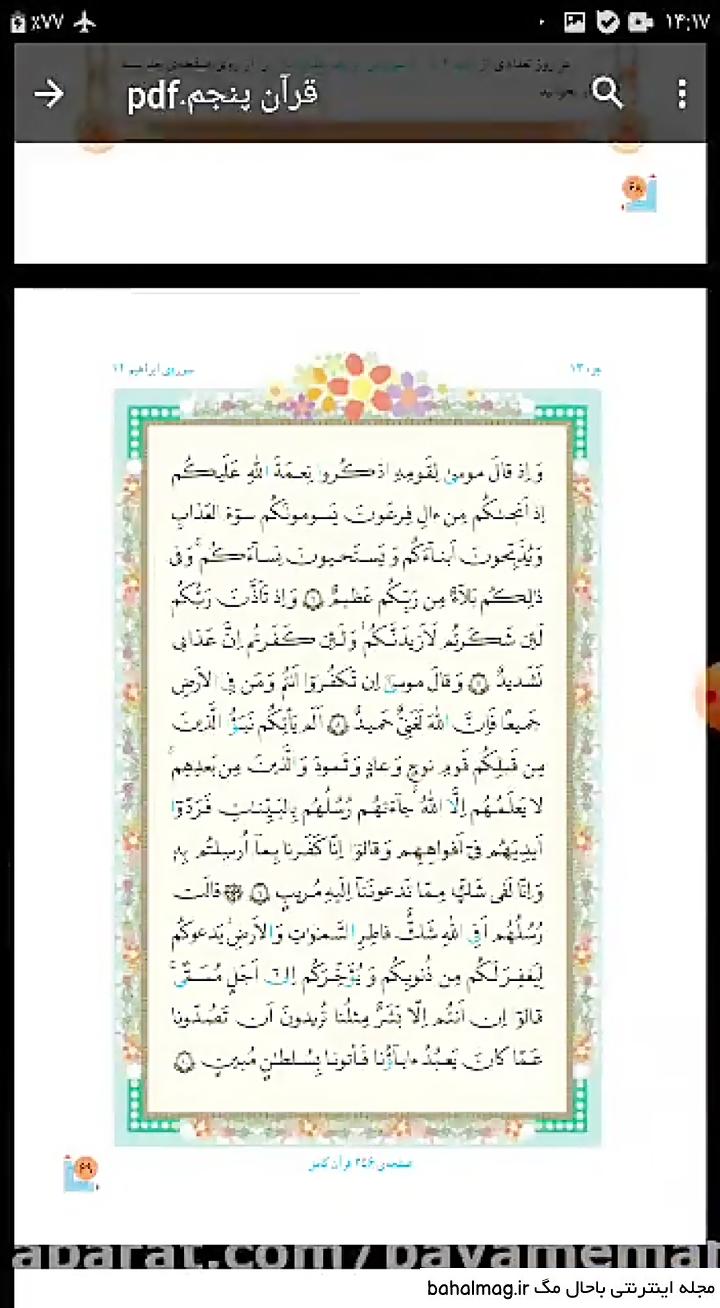 ٪۷۷ ۱۴:۱۷
قرآن پنجم.pdf
۴۸
جزء ۱۳ سوره‌ی ابراهیم ۱۴
وَ اِذ قالَ موسىٰ لِقَومِهِ اذكُروا نِعمَةَ اللّٰهِ عَلَيكُم
اِذ اَنجىٰكُم مِن ءالِ فِرعَونَ يَسومونَكُم سوٓءَ العَذابِ
وَ يُذَبِّحونَ اَبنآءَكُم وَ يَستَحيونَ نِسآءَكُم ۚ وَ فى
ذٰلِكُم بَلآءٌ مِن رَبِّكُم عَظيمٌ ۶ وَ اِذ تَاَذَّنَ رَبُّكُم
لَئِن شَكَرتُم لَاَزيدَنَّكُم ۖ وَ لَئِن كَفَرتُم اِنَّ عَذابى
لَشَديدٌ ۷ وَ قالَ موسىٰٓ اِن تَكفُروٓا اَنتُم وَ مَن فِى الاَرضِ
جَميعًا فَاِنَّ اللّٰهَ لَغَنِىٌّ حَميدٌ ۸ اَلَم يَأتِكُم نَبَؤُا الَّذينَ
مِن قَبلِكُم قَومِ نوحٍ وَ عادٍ وَ ثَمودَ وَ الَّذينَ مِن بَعدِهِم ۛ
لا يَعلَمُهُم اِلَّا اللّٰهُ ۚ جآءَتهُم رُسُلُهُم بِالبَيِّنٰتِ فَرَدّوٓا
اَيدِيَهُم فىٓ اَفواهِهِم وَ قالوٓا اِنّا كَفَرنا بِمآ اُرسِلتُم بِهٖ
وَ اِنّا لَفى شَكٍّ مِمّا تَدعونَنآ اِلَيهِ مُريبٍ ۹ ۞ قالَت
رُسُلُهُم اَفِى اللّٰهِ شَكٌّ فاطِرِ السَّمٰوٰتِ وَ الاَرضِ ۖ يَدعوكُم
لِيَغفِرَ لَكُم مِن ذُنوبِكُم وَ يُؤَخِّرَكُم اِلىٰٓ اَجَلٍ مُسَمًّى ۚ
قالوٓا اِن اَنتُم اِلّا بَشَرٌ مِثلُنا تُريدونَ اَن تَصُدّونا
عَمّا كانَ يَعبُدُ ءابآؤُنا فَأتونا بِسُلطٰنٍ مُبينٍ ۱۰
صفحه‌ی ۲۵۶ قرآن کامل
۴۹
مجله اینترنتی باحال مگ bahalmag.ir